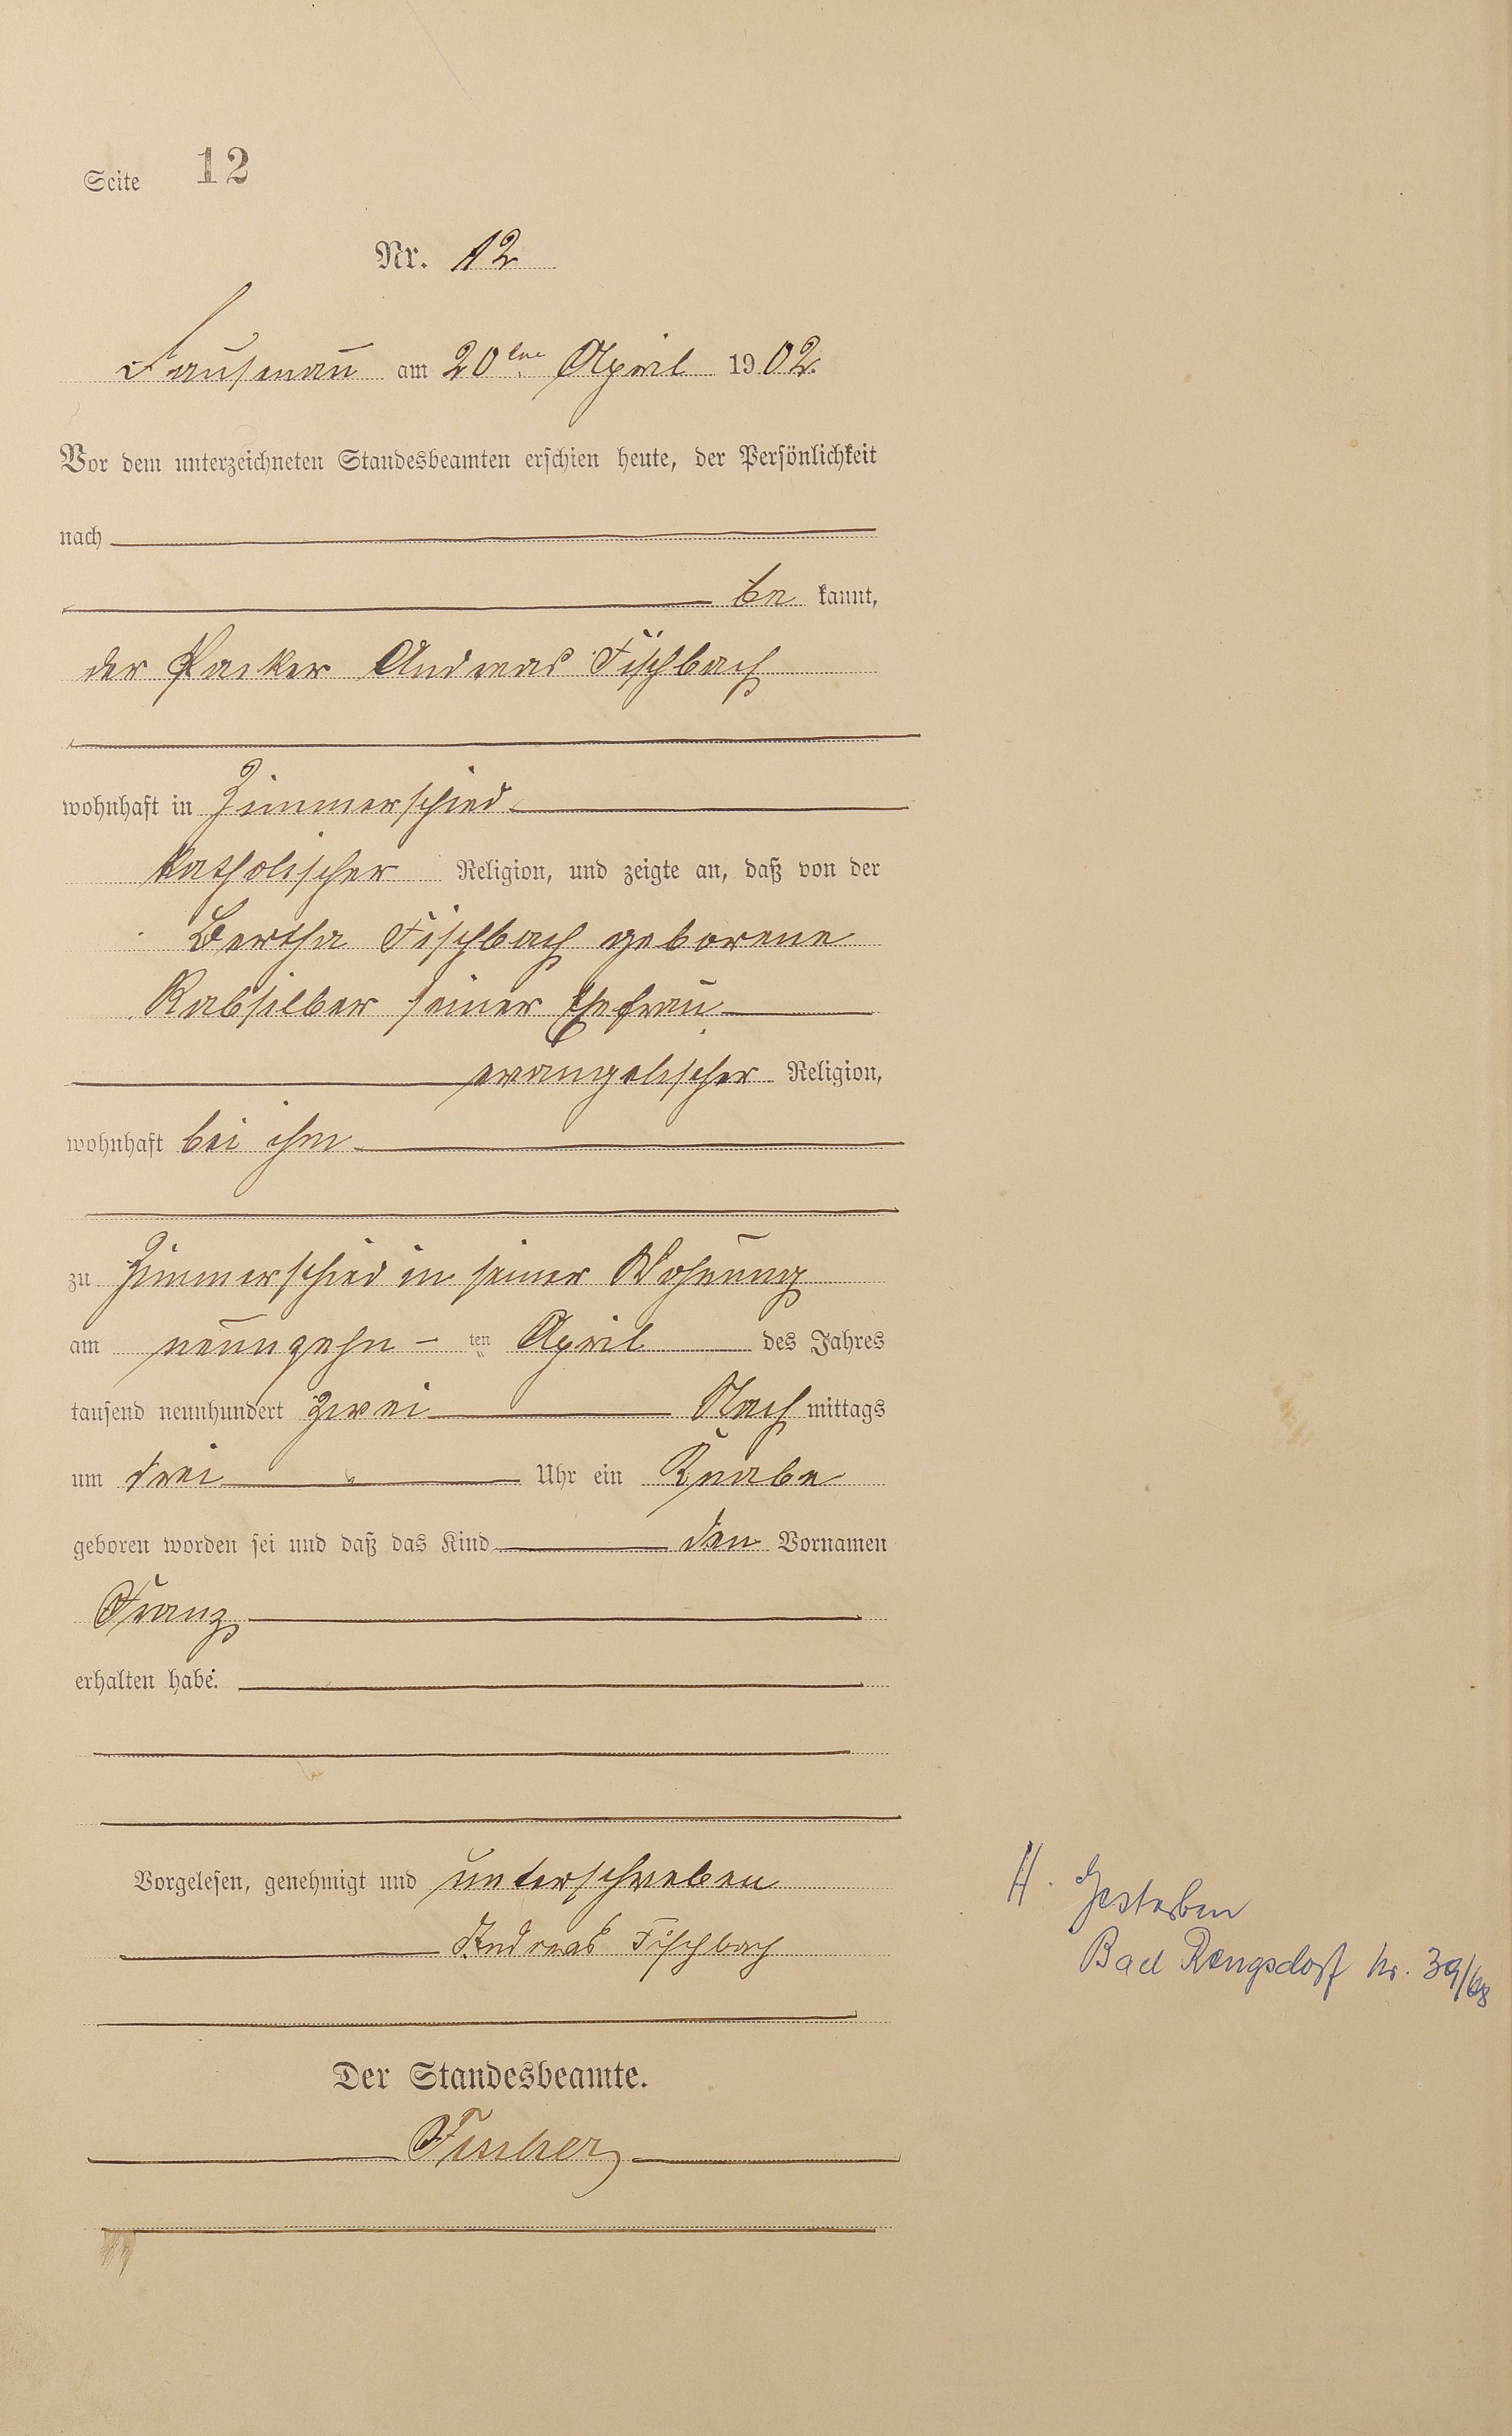 Seite 12
Nr. 12
am 20ten April 1902.
Vor dem unterzeichneten Standesbeamten erschien heute, der Persönlichkeit
nach
be kannt,
der Packer Andreas Fischbach
wohnhaft in Zimmerschied
katholischer Religion, und zeigte an, daß von der
Bertha Fischbach geborene
Rabsilber seiner Ehefrau
evangelischer Religion,
wohnhaft bei ihm
zu Zimmerschied in seiner Wohnung
am neunzehn - ten April des Jahres
tausend neunhundert zwei Nach mittags
um drei Uhr ein Knabe
geboren worden sei und daß das Kind den Vornamen
Franz
erhalten habe.
Vorgelesen, genehmigt und unterschrieben
Andreas Fischbach
Der Standesbeamte.
Fischer
H. Gestorben
Bad Rengsdorf Nr. 39/68